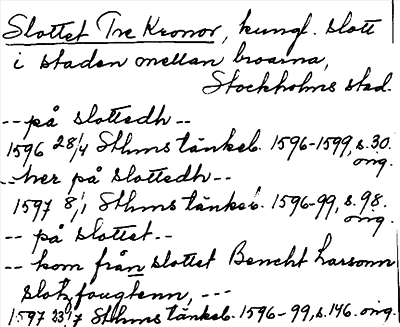 Slottet Tre Kronor, kungl. slott
i staden mellan broarna,
Stockholms stad.
-- på slottedh --
1596 28/4 Sthms tänkeb. 1596-1599, s. 30.
orig.
-- her på slottedh --
1597 8/1 Sthms tänkeb. 1596-99, s. 98.
orig.
-- på slottet --
-- kom från slottet Bencht Larsonn
slotz fougtenn, ---
1597 23/7 Sthms tänkeb. 1596-99, s. 146. orig.